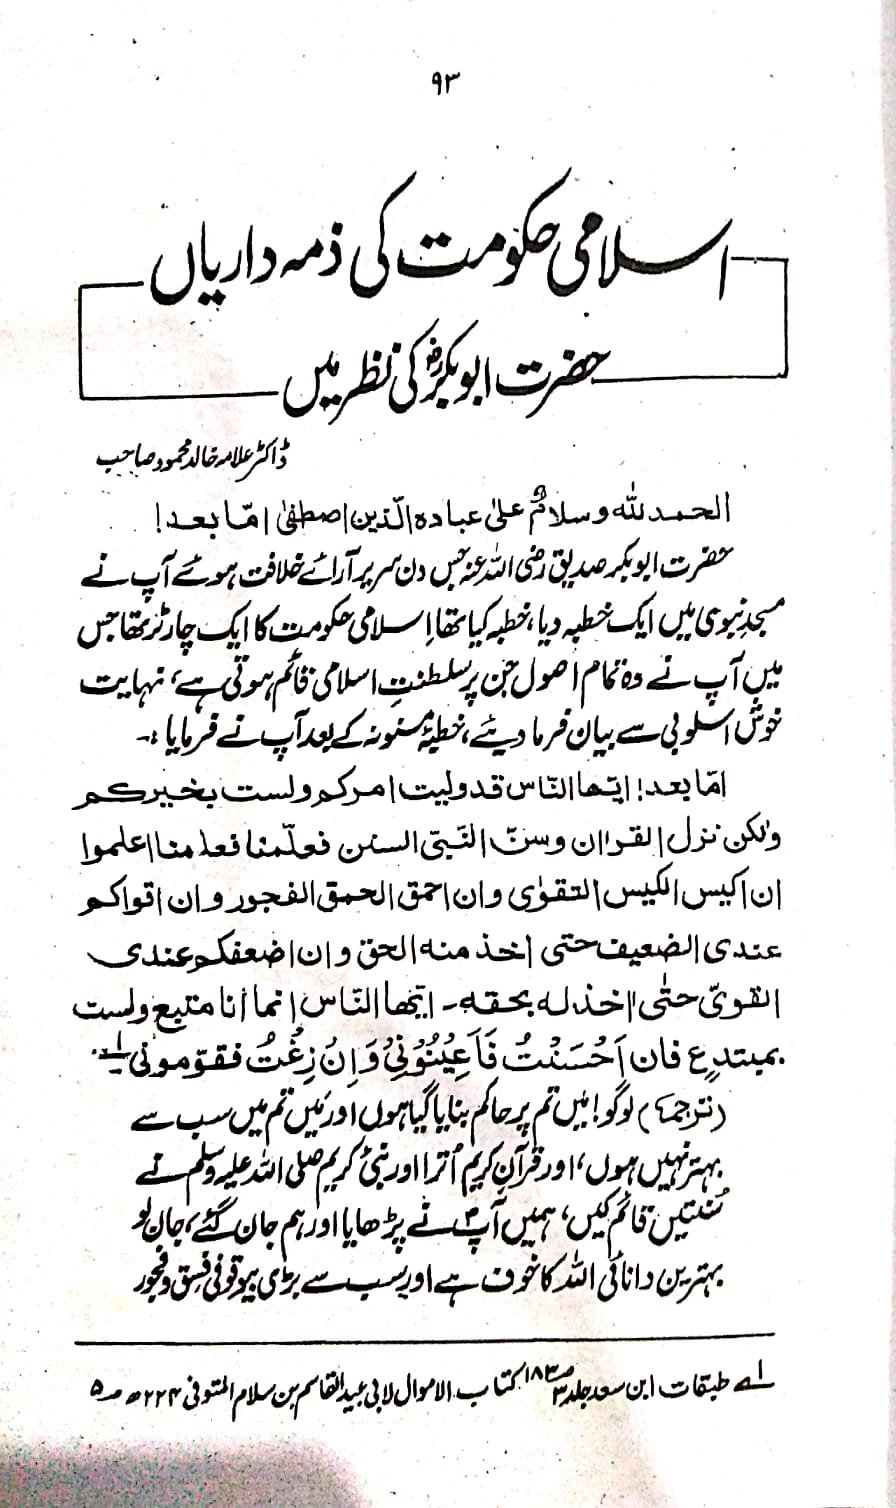 ۹۳
اسلامی حکومت کی ذمہ داریاں
حضرت ابوبکرؓ کی نظر میں
ڈاکٹر علامہ خالد محمود صاحب
الحمد للّٰہ وسلامٌ علیٰ عبادہ الّذین اصطفیٰ امّا بعد!
حضرت ابوبکر صدیق رضی اللہ عنہ جس دن سریر آرائے خلافت ہوئے آپ نے
مسجدِ نبوی میں ایک خطبہ دیا، خطبہ کیا تھا اسلامی حکومت کا ایک چارٹر تھا جس
میں آپ نے وہ تمام اصول جن پر سلطنتِ اسلامی قائم ہوتی ہے، نہایت
خوش اسلوبی سے بیان فرما دیئے، خطبۂ مسنونہ کے بعد آپ نے فرمایا :-
امّا بعد! ایّھا النّاس قد ولیت امرکم ولست بخیرکم
ولٰکن نزل القراٰن وسنّ النّبیّ السنن فعلّمنا فعلمنا اعلموا
ان اکیس الکیس التقوٰی وان احمق الحمق الفجور وان اقواکم
عندی الضعیف حتی اٰخذ منہ الحق وان اضعفکم عندی
القویّ حتّٰی اٰخذ لہ بحقہ۔ ایّھا النّاس انما أنا متبع ولست
بمبتدعٍ فان اَحْسَنْتُ فَاَعِیْنُوْنِیْ وَاِنْ زِغْتُ فقوّمونی لے
(ترجمہ) لوگو! میں تم پر حاکم بنایا گیا ہوں اور مَیں تم میں سب سے
بہتر نہیں ہوں، اور قرآنِ کریم اُترا اور نبیٔ کریم صلی اللہ علیہ وسلم نے
سُنتیں قائم کیں، ہمیں آپؐ نے پڑھایا اور ہم جان گئے، جان لو
بہترین دانائی اللہ کا خوف ہے اور سب سے بڑی بیوقوفی فسق و فجور
لے طبقات ابن سعد جلد ۳ ص ۱۸۳ کتاب الاموال لابی عبید القاسم بن سلام المتوفی ۲۲۴ھ ص ۵